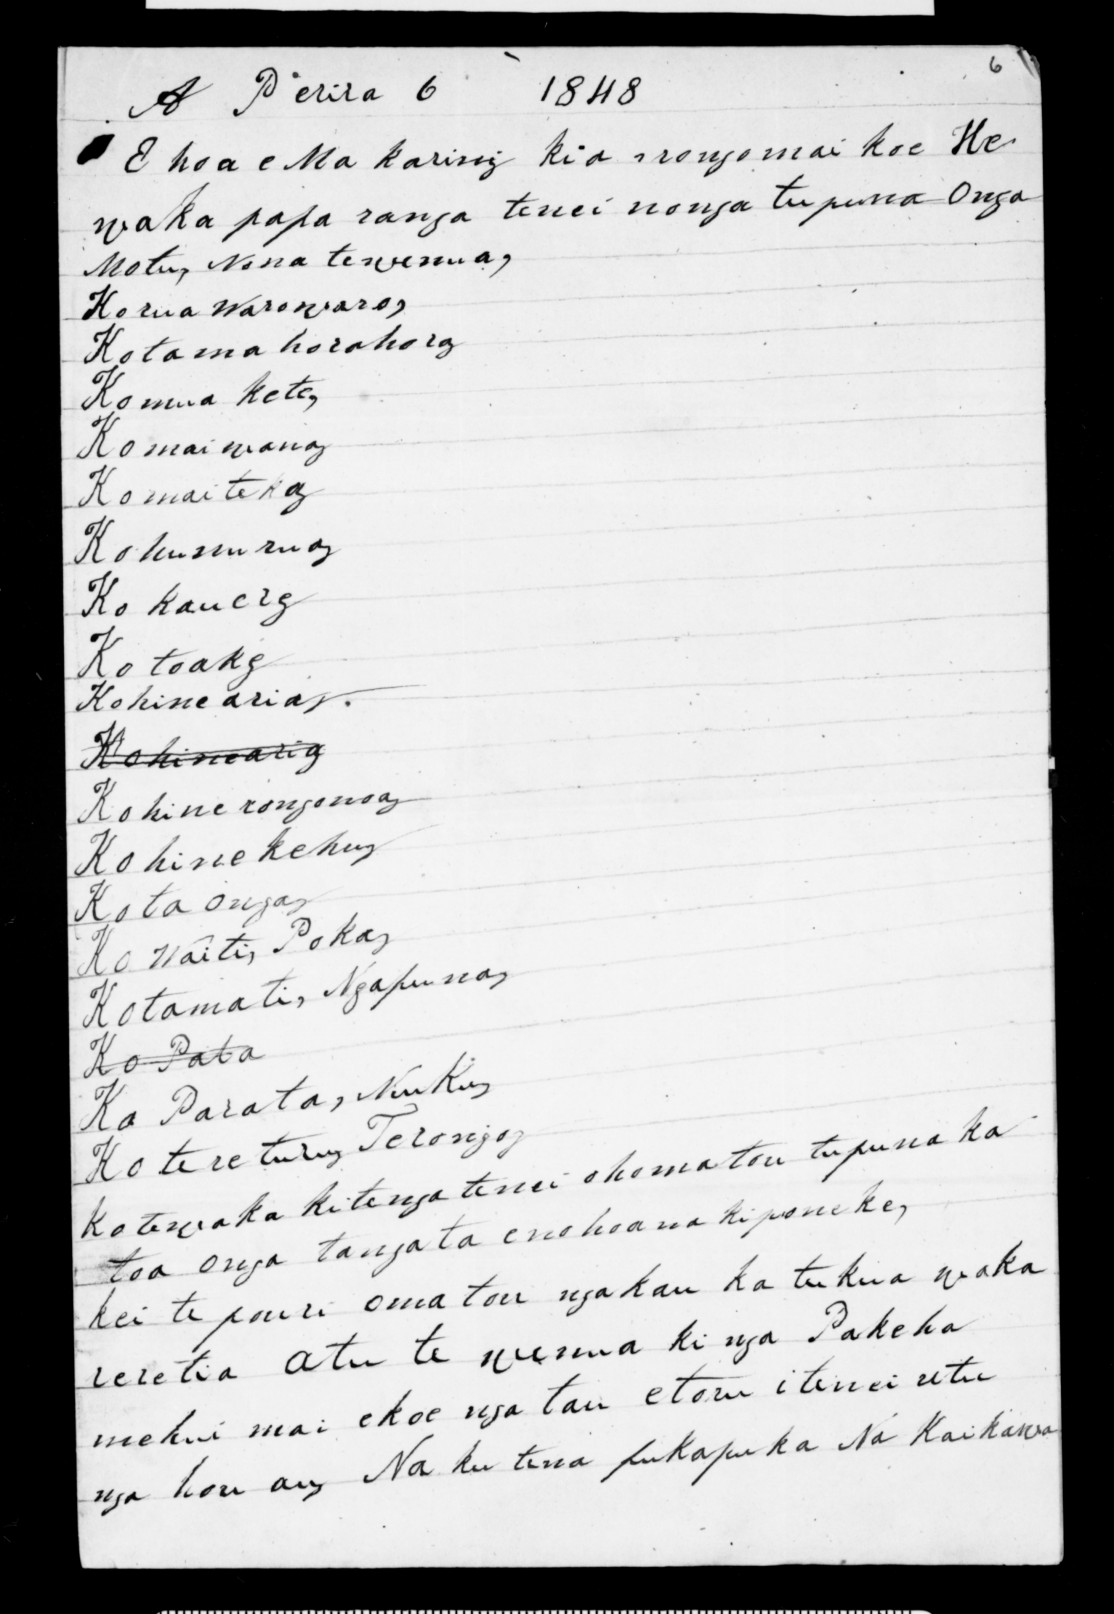 6
A Perira 6 1848
E hoa e Ma karini, kia rongomai koe He
waka papa ranga tenei nonga tupuna Onga
Motu, Nona tewenua,
Korua Warowaro,
Kotama horahora,
Komua kete,
Komaiwana,
Komaiteka,
Kohumurua,
Ko kauere,
Ko toake,
Kohine aria,.
Kohinearia
Kohine rongonoa,
Kohinekehu,
Kota onga,
Ko Waiti, Poka,
Kotamati, Ngapuna,
Ko Pata
Ko Parata, Nuku,
Ko te re turu, Terongo,
Kotewaka kitenga tenei ohomatou tupuna ka
toa onga tangata enohoana kiponeke,
kei te pouri omatou ngakau ka tukua waka
reretia atu te wenua ki nga Pakeha
mehui mai ekoe nga tau etoru itenei utu
nga hou au, Na ku tena pukapuka Na Kaikawa